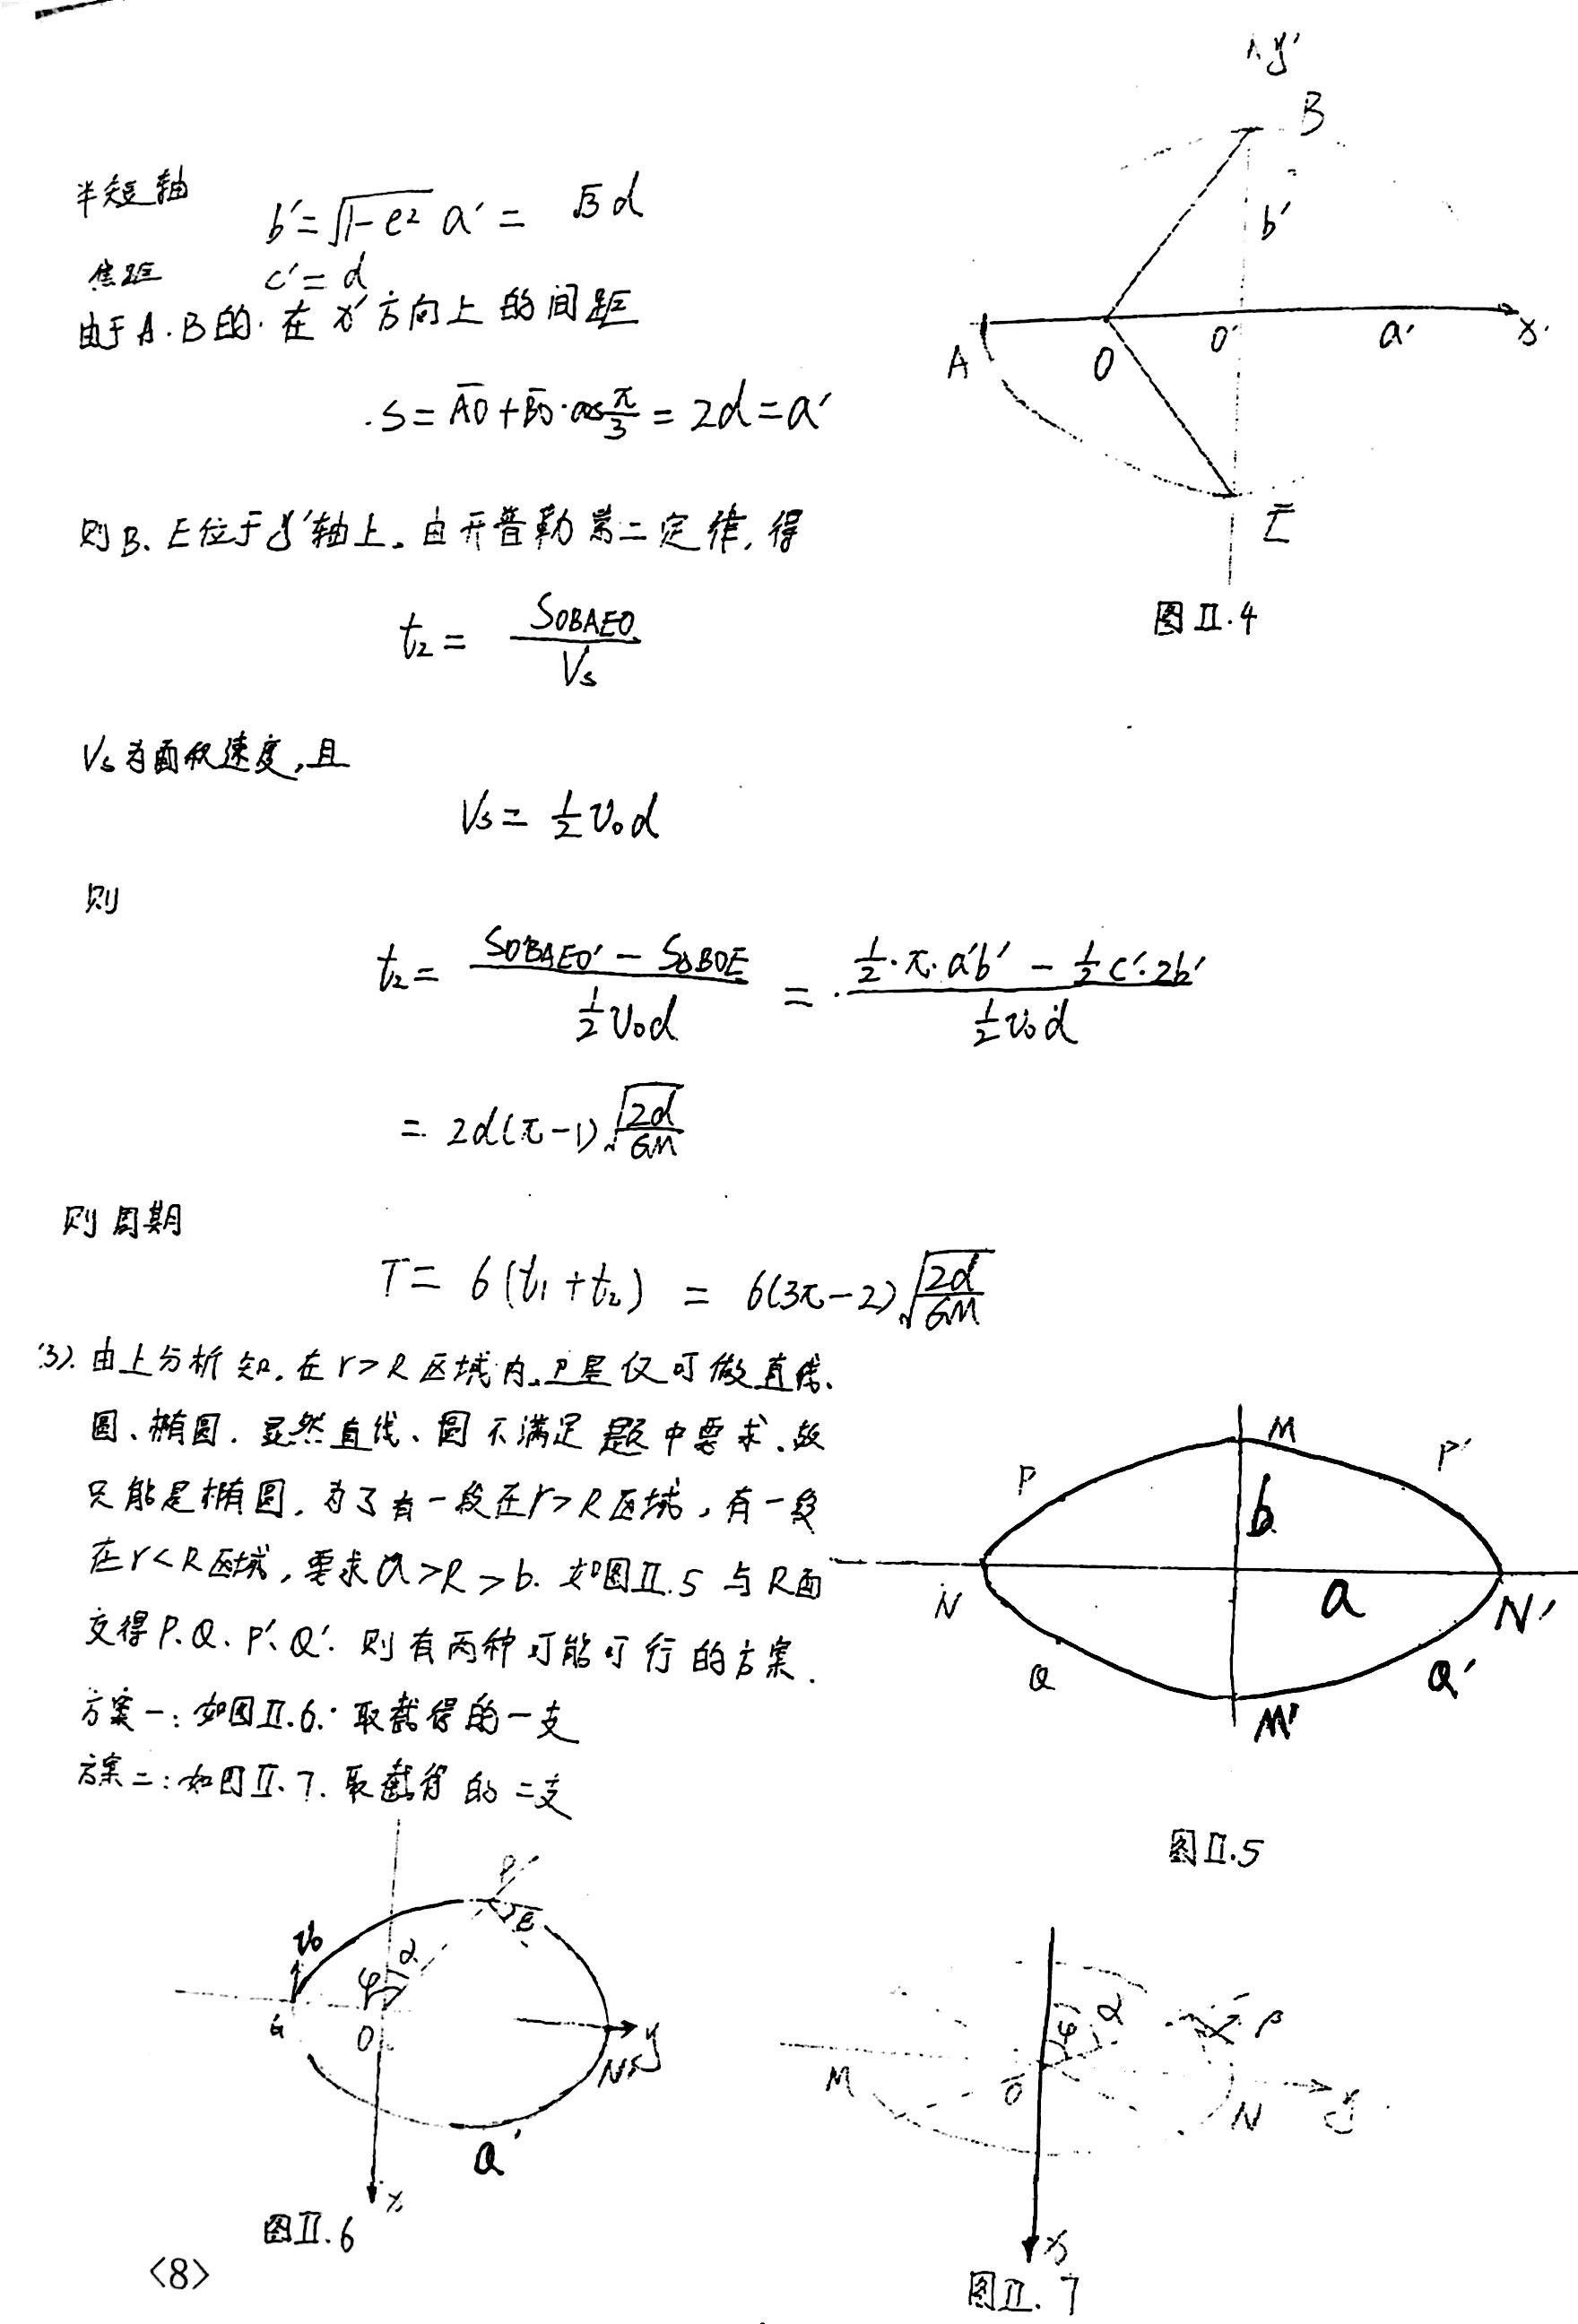 y'
B
半短轴
b'=√(1-e²) a' = √3 d
b'
焦距 c'= d
由于A.B的.在x'方向上的间距
A O O' a' x'
S = AO + BO·cos π/3 = 2d = a'
则B、E位于y'轴上。由开普勒第二定律,得
E
图Ⅱ.4
t₂ = S_OBAEO / Vs
Vs为面积速度,且
Vs = 1/2 v₀d
则
t₂ = (S_OBAEO' - S_△BOE) / (1/2 v₀d) = (1/2·π·a'b' - 1/2 c'·2b') / (1/2 v₀d)
= 2d(π-1)√(2d/GM)
则周期
T = 6(t₁+t₂) = 6(3π-2)√(2d/GM)
(3).由上分析知,在r>R区域内,卫星仅可做直线、
圆、椭圆.显然直线、圆不满足题中要求.故
只能是椭圆,为了有一段在r>R区域,有一段
在r<R区域,要求a>R>b. 如图Ⅱ.5与R面
交得P、Q、P'、Q'. 则有两种可能可行的方案.
方案一:如图Ⅱ.6.取截得的一支
方案二:如图Ⅱ.7.取截得的二支
M
P P'
b
N a N'
Q Q'
M'
图Ⅱ.5
P'
β
v₀ α
φ
O y
N'
Q'
x
图Ⅱ.6
φ α β
M O N y
x
图Ⅱ.7
<8>